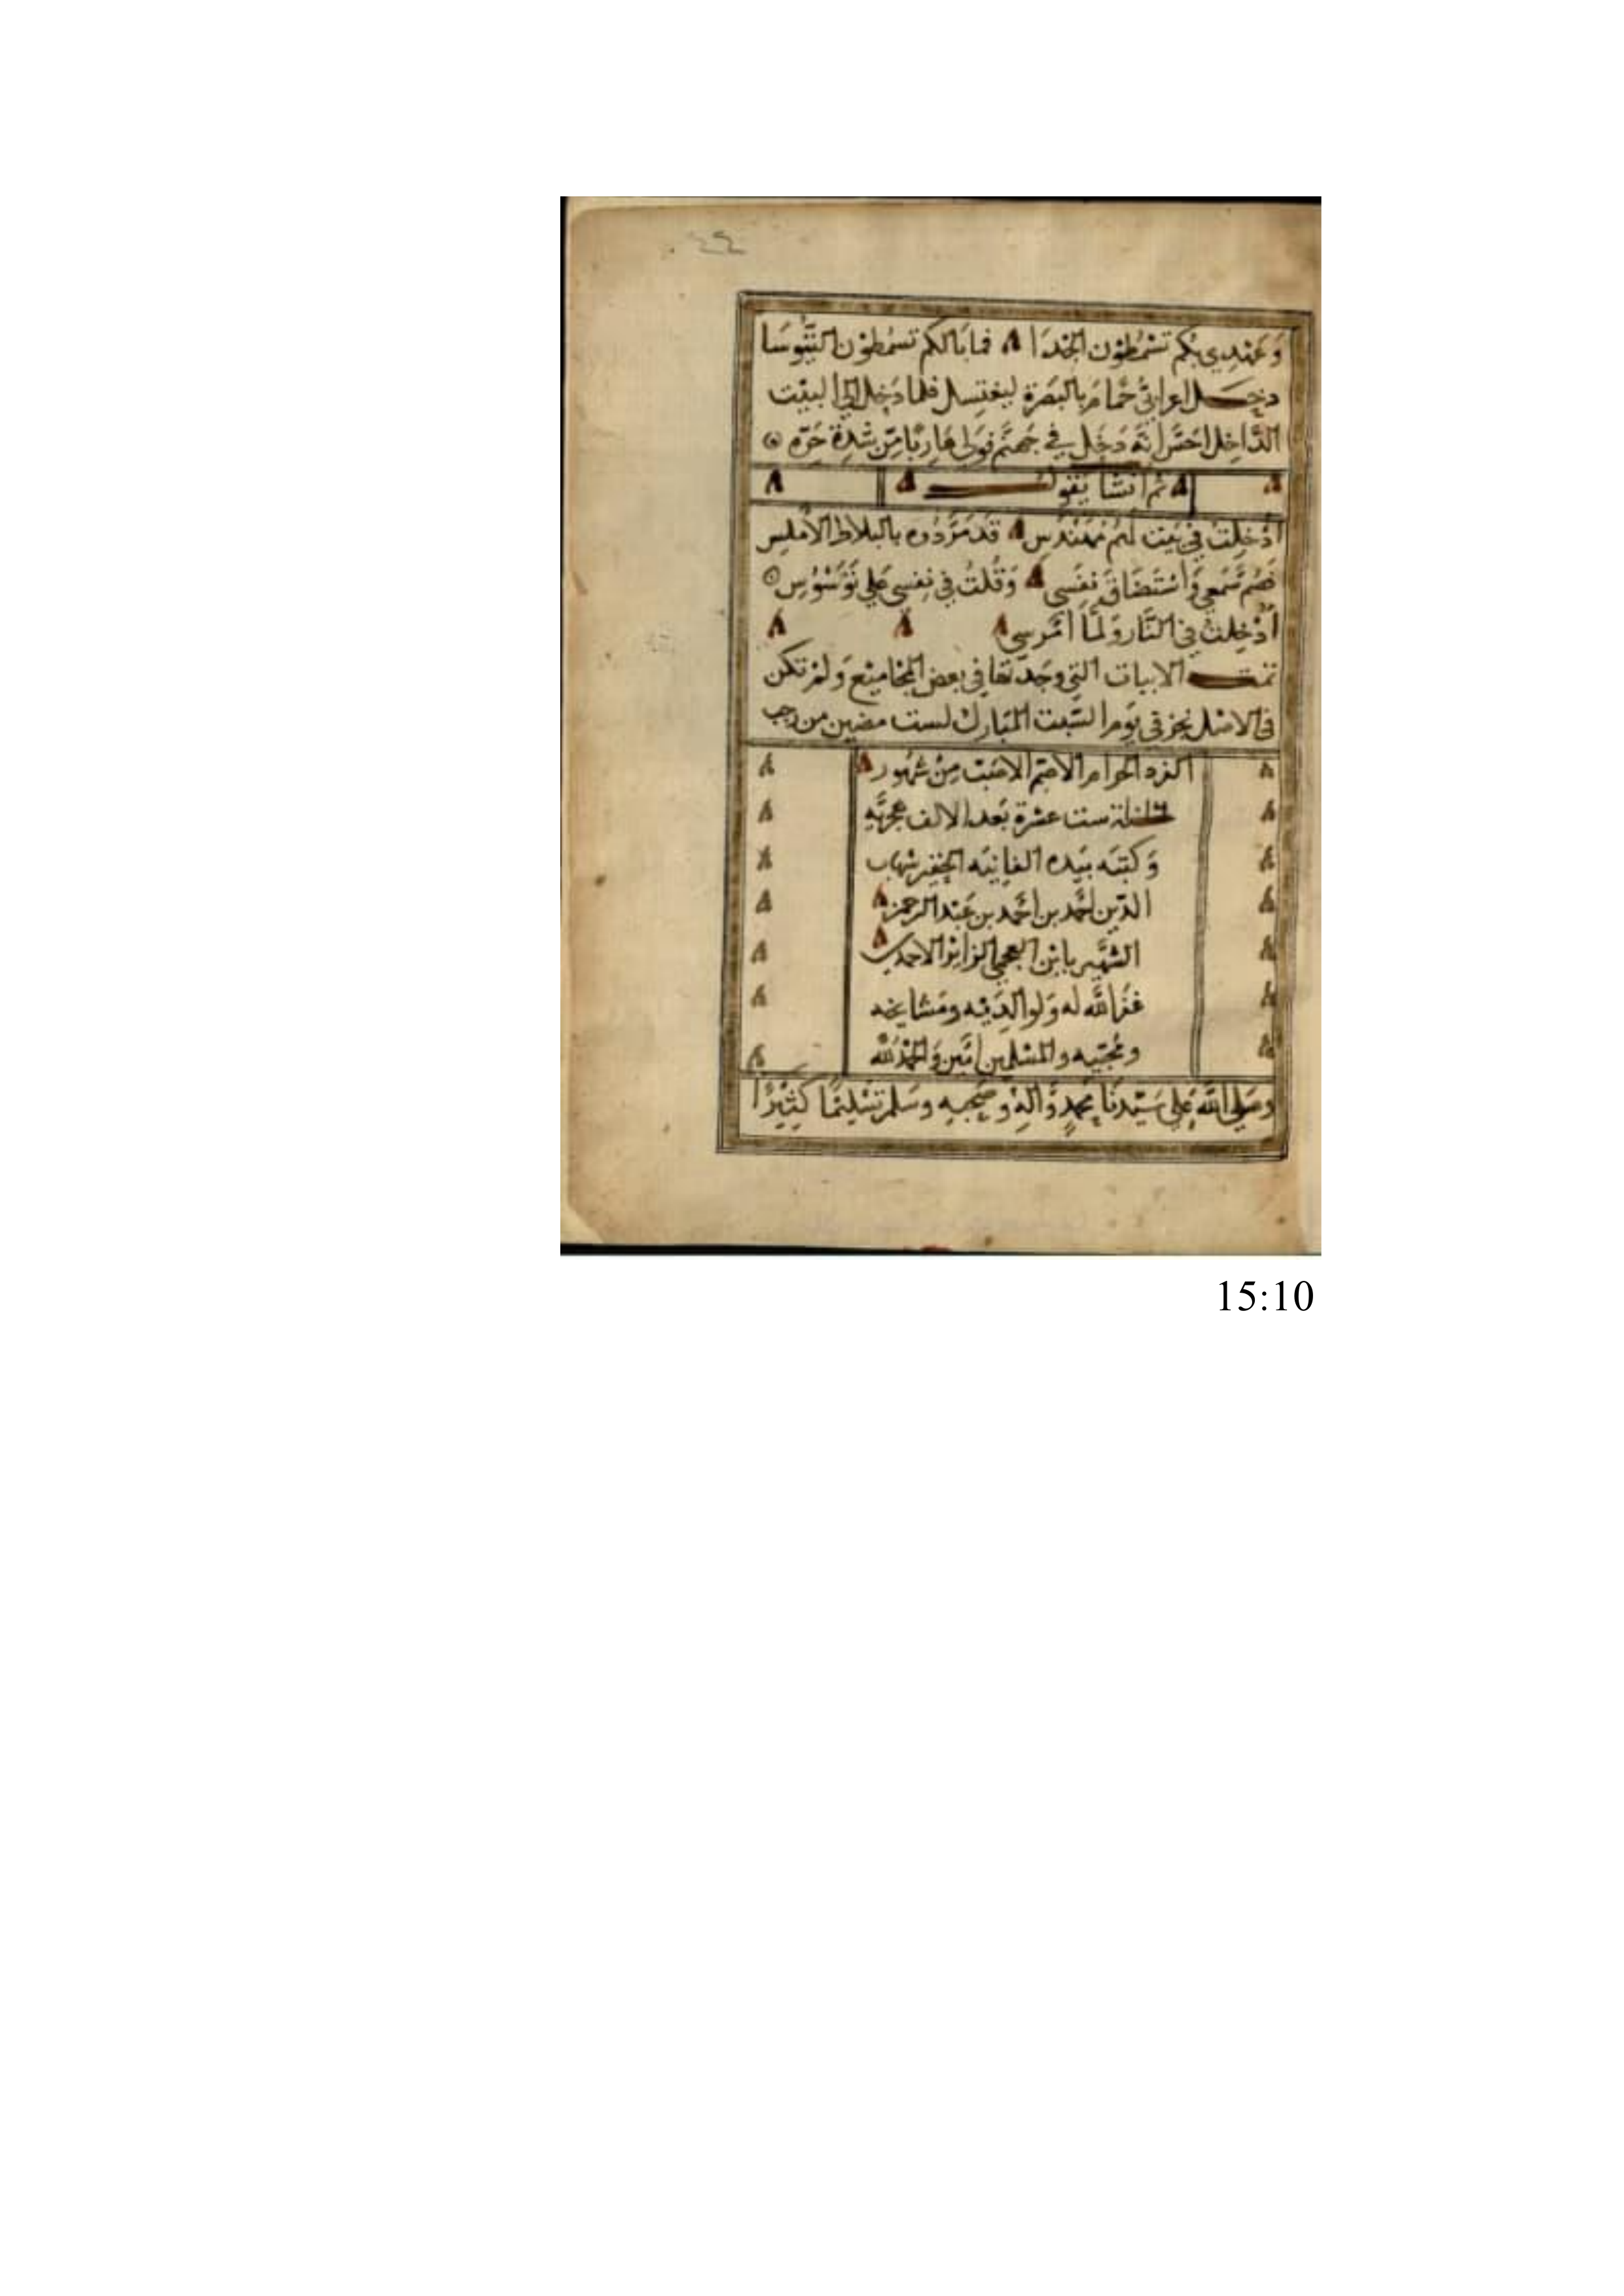 ٤٤
وَعَهْدِي بكم تَسْمُطُوْن الجْدَا فما بَالكم تسمُطُوْن التُّيُوسَا
دخــل اعرابيّ حمَّامَ بالبَصْرة ليغتسل فلما دَخل الي البيْت
الدَّاخل احسَّ انَّه دَخَل في جَهنَّم فولي هَاربًا مِن شدة حَرّه
ثم انشا يَقول
أُدْخِلتُ في بَيت لهُم مهَندَس قد مَرَّدُوه بالبلاط الأملس
فصُم سَمعي وَاسْتَضَاقَ نفَسي وَقُلتُ في نفسي علي تَوَسْوُسِ
أُدْخِلتُ في النَّار وَلمَّا أُرْمَسِ
تمت الابيات التي وجَدتها في بعض المجاميْع وَلمْ تكن
في الاصْل نجز في يَوم السَّبت المبَارك لست مضين من رجب
الفرد الحرام الأصَم الأصَبّ مِنْ شهُور
سنة ست عشرة بَعد الالف هجريَّه
وَكتبَه بيَده الفانيَه الحقير شهاب
الدّين احمَد بن احمَد بن عَبد الرحمن
الشهَير بابْن العجمي الاحمدي
غفَر اللّه له وَلوالدَيْه ومَشايخه
ومُحبّيه والمسْلمين امَين وَالحمْدُ للّه
وصَلي اللَّه عَلي سَيّدنَا محمَدٍ وَّالهِ وصَحبه وسَلم تسْليمًا كثِيْرًا
15:10